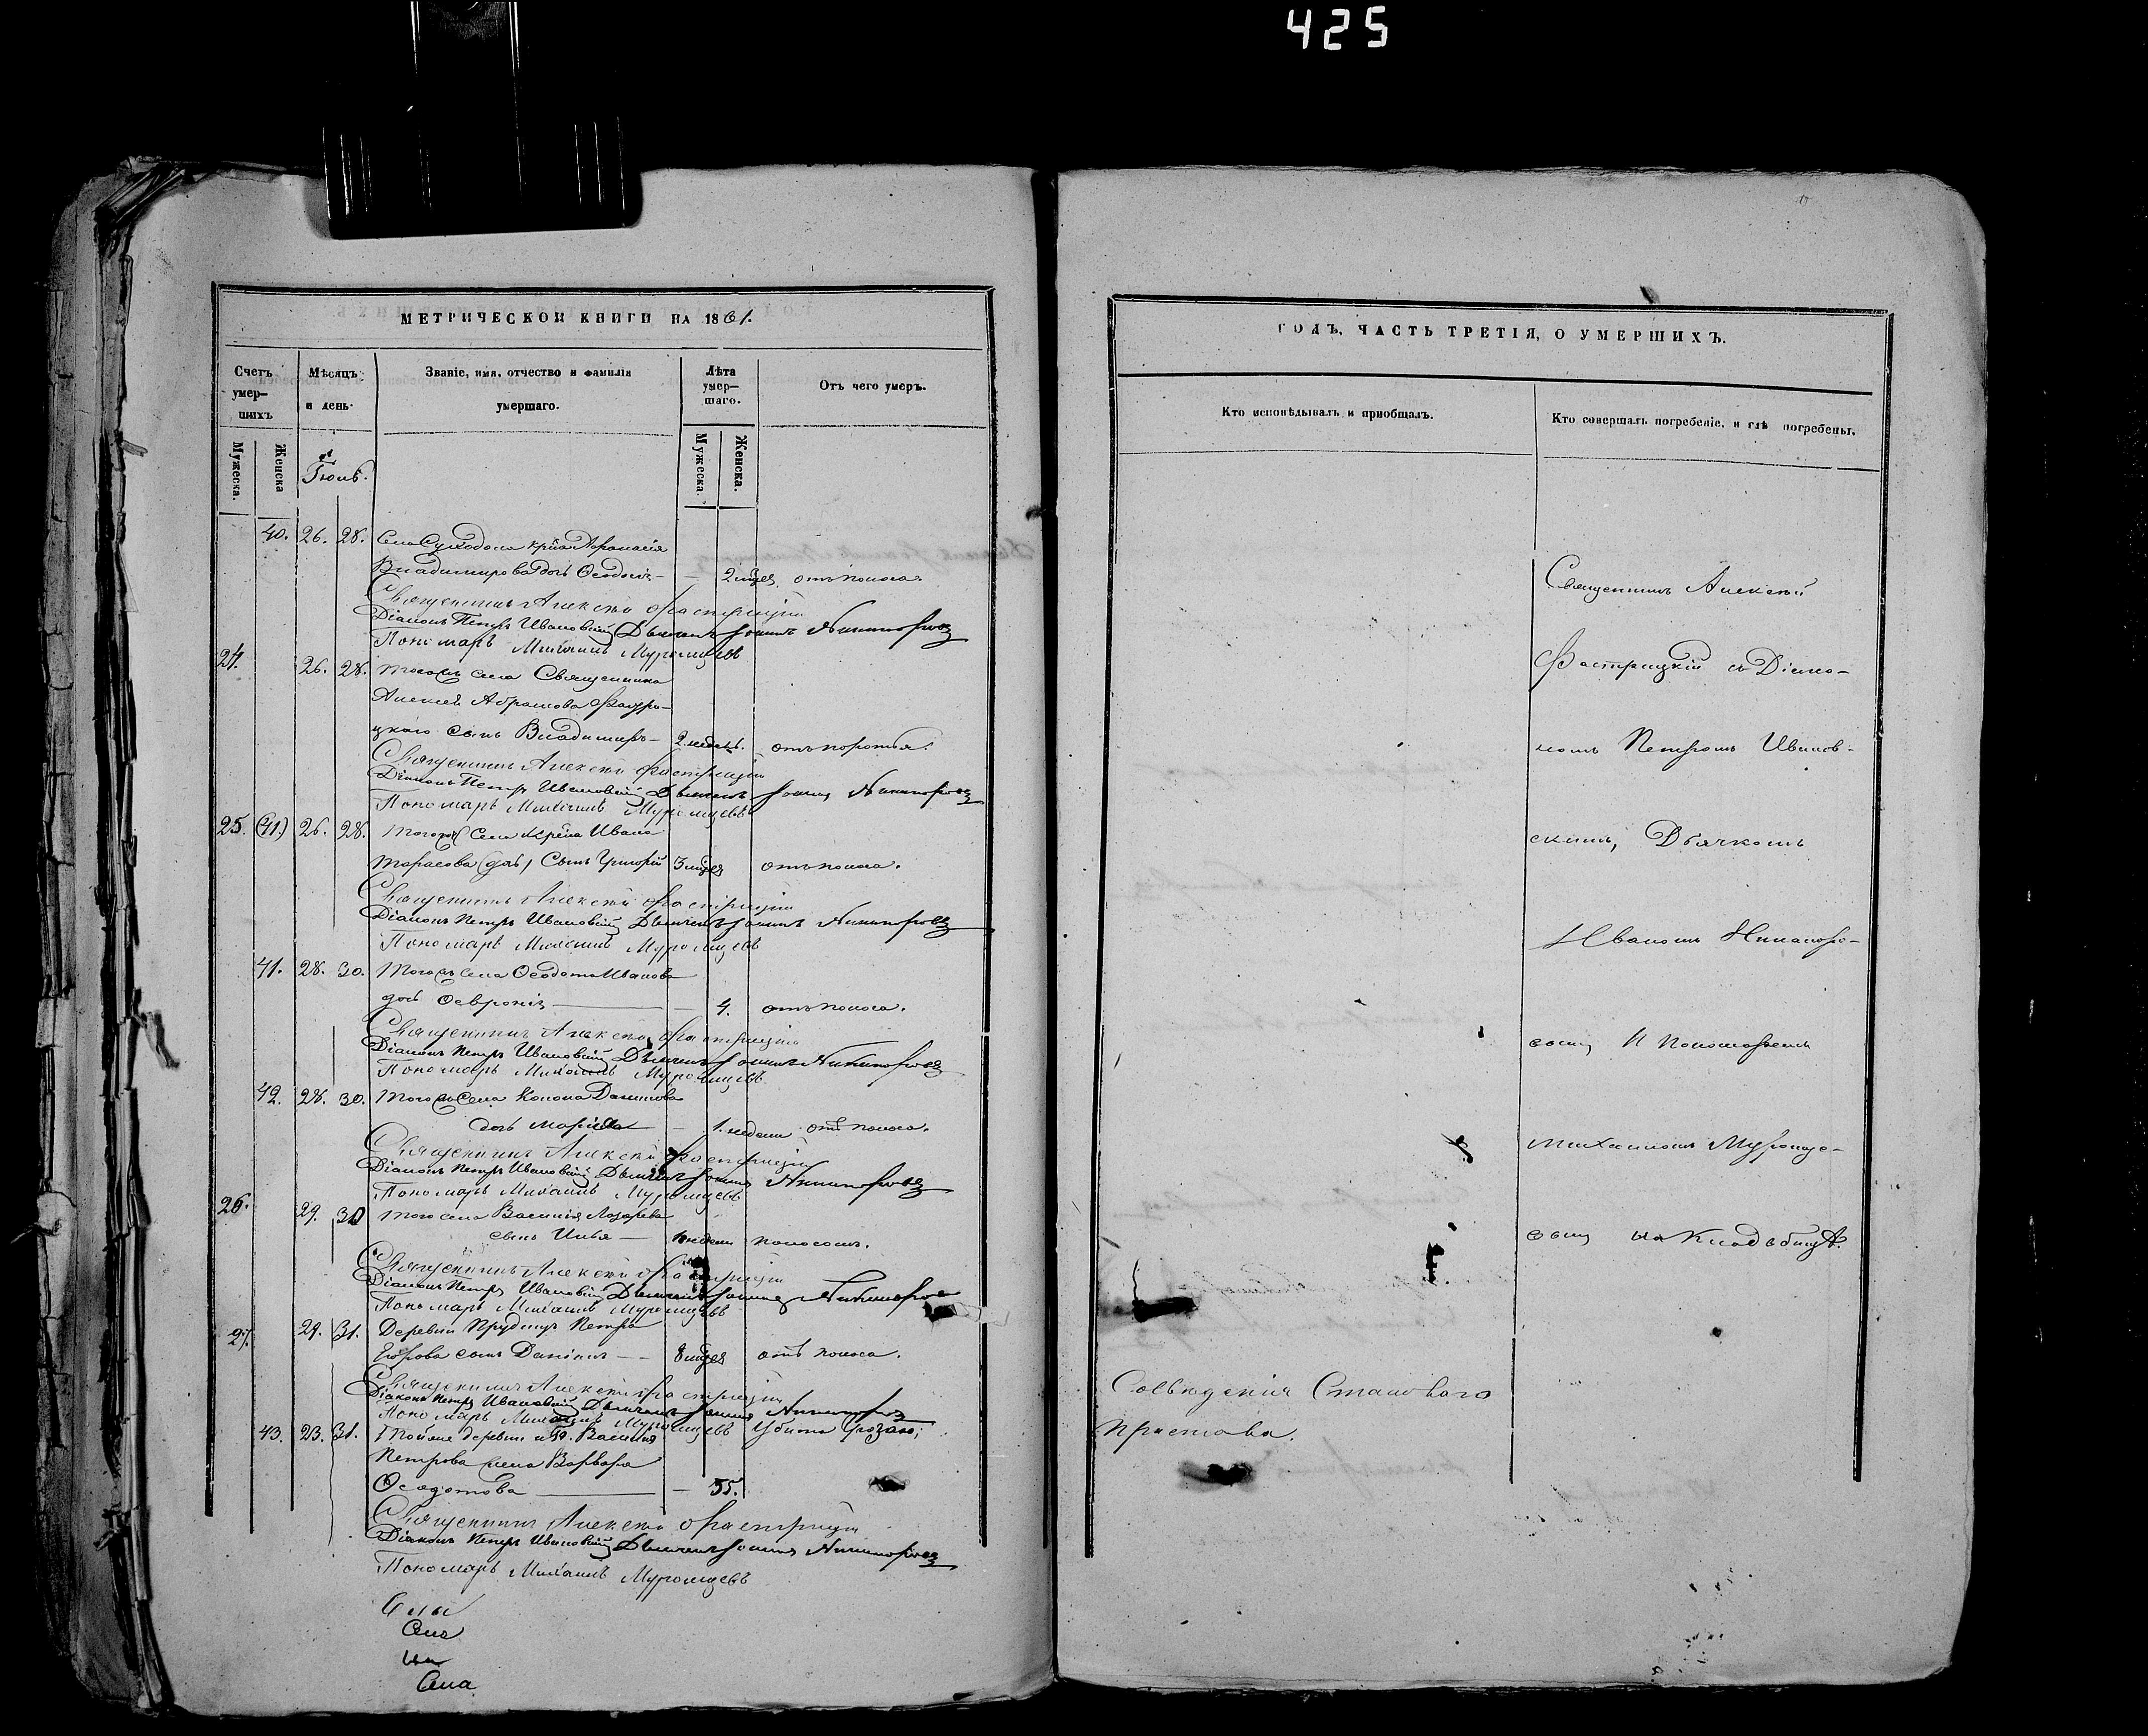 425
МЕТРИЧЕСКОЙ КНИГИ НА 1861.
Счетъ умер-шихъ
Мѣсяцъ и день.
Званіе, имя, отчество и фамилія умершаго.
Лѣта умер-шаго.
Отъ чего умеръ.
Мужеска.
Женска
Мужеска.
Женска.
Іюль.
40. 26. 28. Села Суходола кр̃на Афанасія
Владимирова дочь Ѳеодосія — — 2 отъ поноса.
Священникъ Алексѣй Фастрицкій
Діаконъ Петръ Ивановскій Дьячекъ Іоаннъ Никифоровъ
Пономарь Михаилъ Муромцевъ
24. 26. 28. Тогожъ села Священника
Алексѣя Абрамова
цкаго сынъ Владимиръ — 2 недѣль.
Священникъ Алексѣй Фастрицкій
Діаконъ Петръ Ивановскій Дьячекъ Іоаннъ Никифоровъ
Пономарь Михаилъ Муромцевъ
25. (41.) 26. 28. Тогожъ Села Ивана
Тарасова (дочь) Сынъ Григорій 3 отъ поноса.
Священникъ Алексѣй Фастрицкій
Діаконъ Петръ Ивановскій Дьячекъ Іоаннъ Никифоровъ
Пономарь Михаилъ Муромцевъ
41. 28. 30. Тогожъ села Ѳеодота Иванова
дочь Ѳевронія — — 4. отъ поноса.
Священникъ Алексѣй Фастрицкій
Діаконъ Петръ Ивановскій Дьячекъ Іоаннъ Никифоровъ
Пономарь Михаилъ Муромцевъ
42. 28. 30. Тогожъ Села Конона Данилова
дочь Марія — 1. недели отъ поноса.
Священникъ Алексѣй Фастрицкій
Діаконъ Петръ Ивановскій Дьячекъ Іоаннъ Никифоровъ
Пономарь Михаилъ Муромцевъ
26. 29. 30 Того села Василія Лазарева
сынъ Илья — недели поносомъ.
Священникъ Алексѣй Фастрицкій
Діаконъ Петръ Ивановскій Дьячекъ Іоаннъ Никифоровъ
Пономарь Михаилъ Муромцевъ
27. 29. 31. Деревни Прудищъ Петра
Егорова сынъ Даніилъ — — 8 отъ поноса.
Священникъ Алексѣй Фастрицкій
Діаконъ Петръ Ивановскій Дьячекъ Іоаннъ Никифоровъ
Пономарь Михаилъ Муромцевъ
43. 23. 31. Тойже деревни Василія Убита грозою;
Петрова жена Варвара
Ѳеодотова — — 35.
Священникъ Алексѣй Фастрицкій
Діаконъ Петръ Ивановскій Дьячекъ Іоаннъ Никифоровъ
Пономарь Михаилъ Муромцевъ
Села
Села
ГОДЪ, ЧАСТЬ ТРЕТІЯ, О УМЕРШИХЪ.
Кто исповѣдывалъ и пріобщалъ.
Кто совершалъ погребеніе, и гдѣ погребены.
Священникъ Алексѣй
Фастрицкій съ Діако-
номъ Петромъ Иванов-
скимъ, Дьячкомъ
Иваномъ Никифоро-
вымъ И Пономаремъ
Михаиломъ Муромце-
вымъ на Кладбищѣ.
Становаго
Пристава.